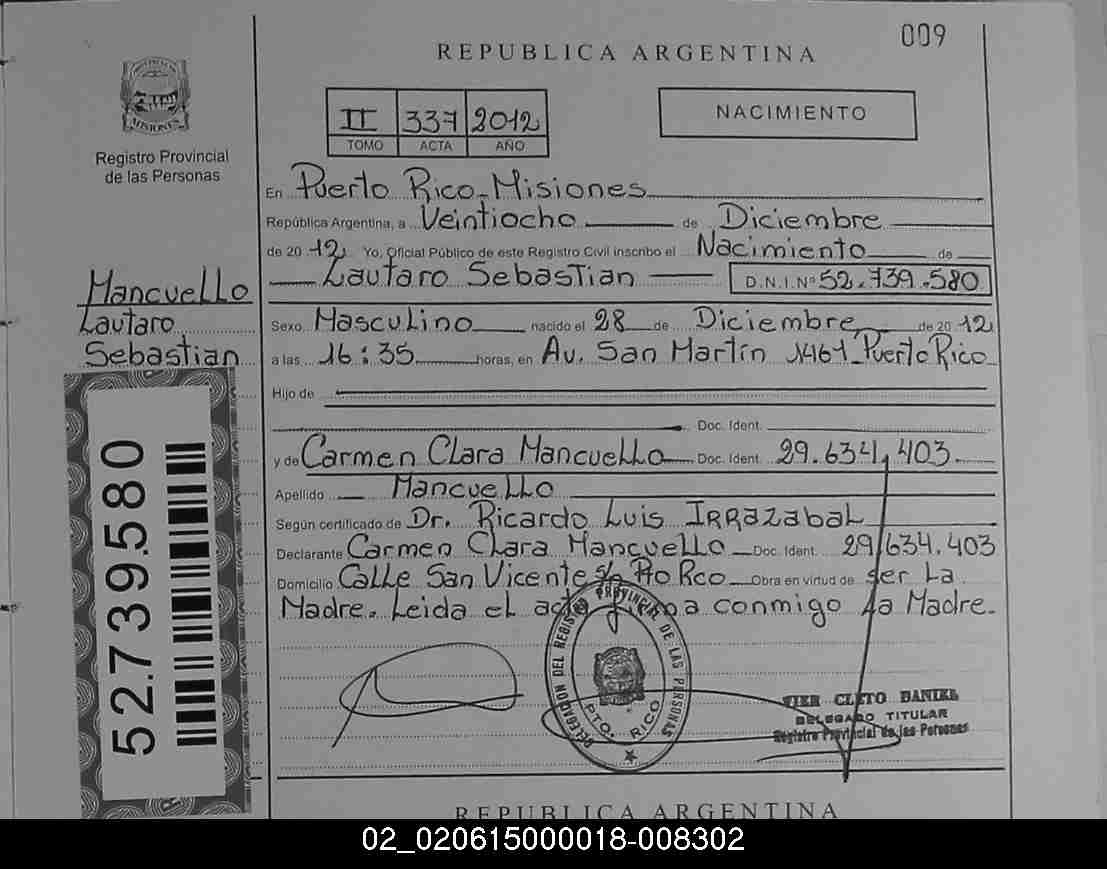 009
REPUBLICA ARGENTINA
II 337 2012
TOMO ACTA AÑO
NACIMIENTO
PROVINCIA DE
MISIONES
Registro Provincial
de las Personas
En Puerto Rico - Misiones
República Argentina, a Veintiocho de Diciembre
de 20 12 Yo, Oficial Público de este Registro Civil inscribo el Nacimiento de
Lautaro Sebastian D.N.I. Nº 52.739.580
Mancuello
Lautaro
Sebastian
Sexo Masculino nacido el 28 de Diciembre de 20 12
a las 16:35 horas, en Av. San Martín 1461 - Puerto Rico
Hijo de
Doc. Ident.
y de Carmen Clara Mancuello Doc. Ident. 29.634.403
Apellido Mancuello
Según certificado de Dr. Ricardo Luis IRRazabaL
Declarante Carmen Clara Mancuello Doc. Ident. 29.634.403
Domicilio Calle San Vicente s/n Pto Rco Obra en virtud de ser La
Madre. Leida el acta firma conmigo La Madre.
52.739.580
DELEGACION DEL REGISTRO PROVINCIAL DE LAS PERSONAS
PTO. RICO
CLETO DANIEL
DELEGADO TITULAR
Registro Provincial de las Personas
REPUBLICA ARGENTINA
02_020615000018-008302